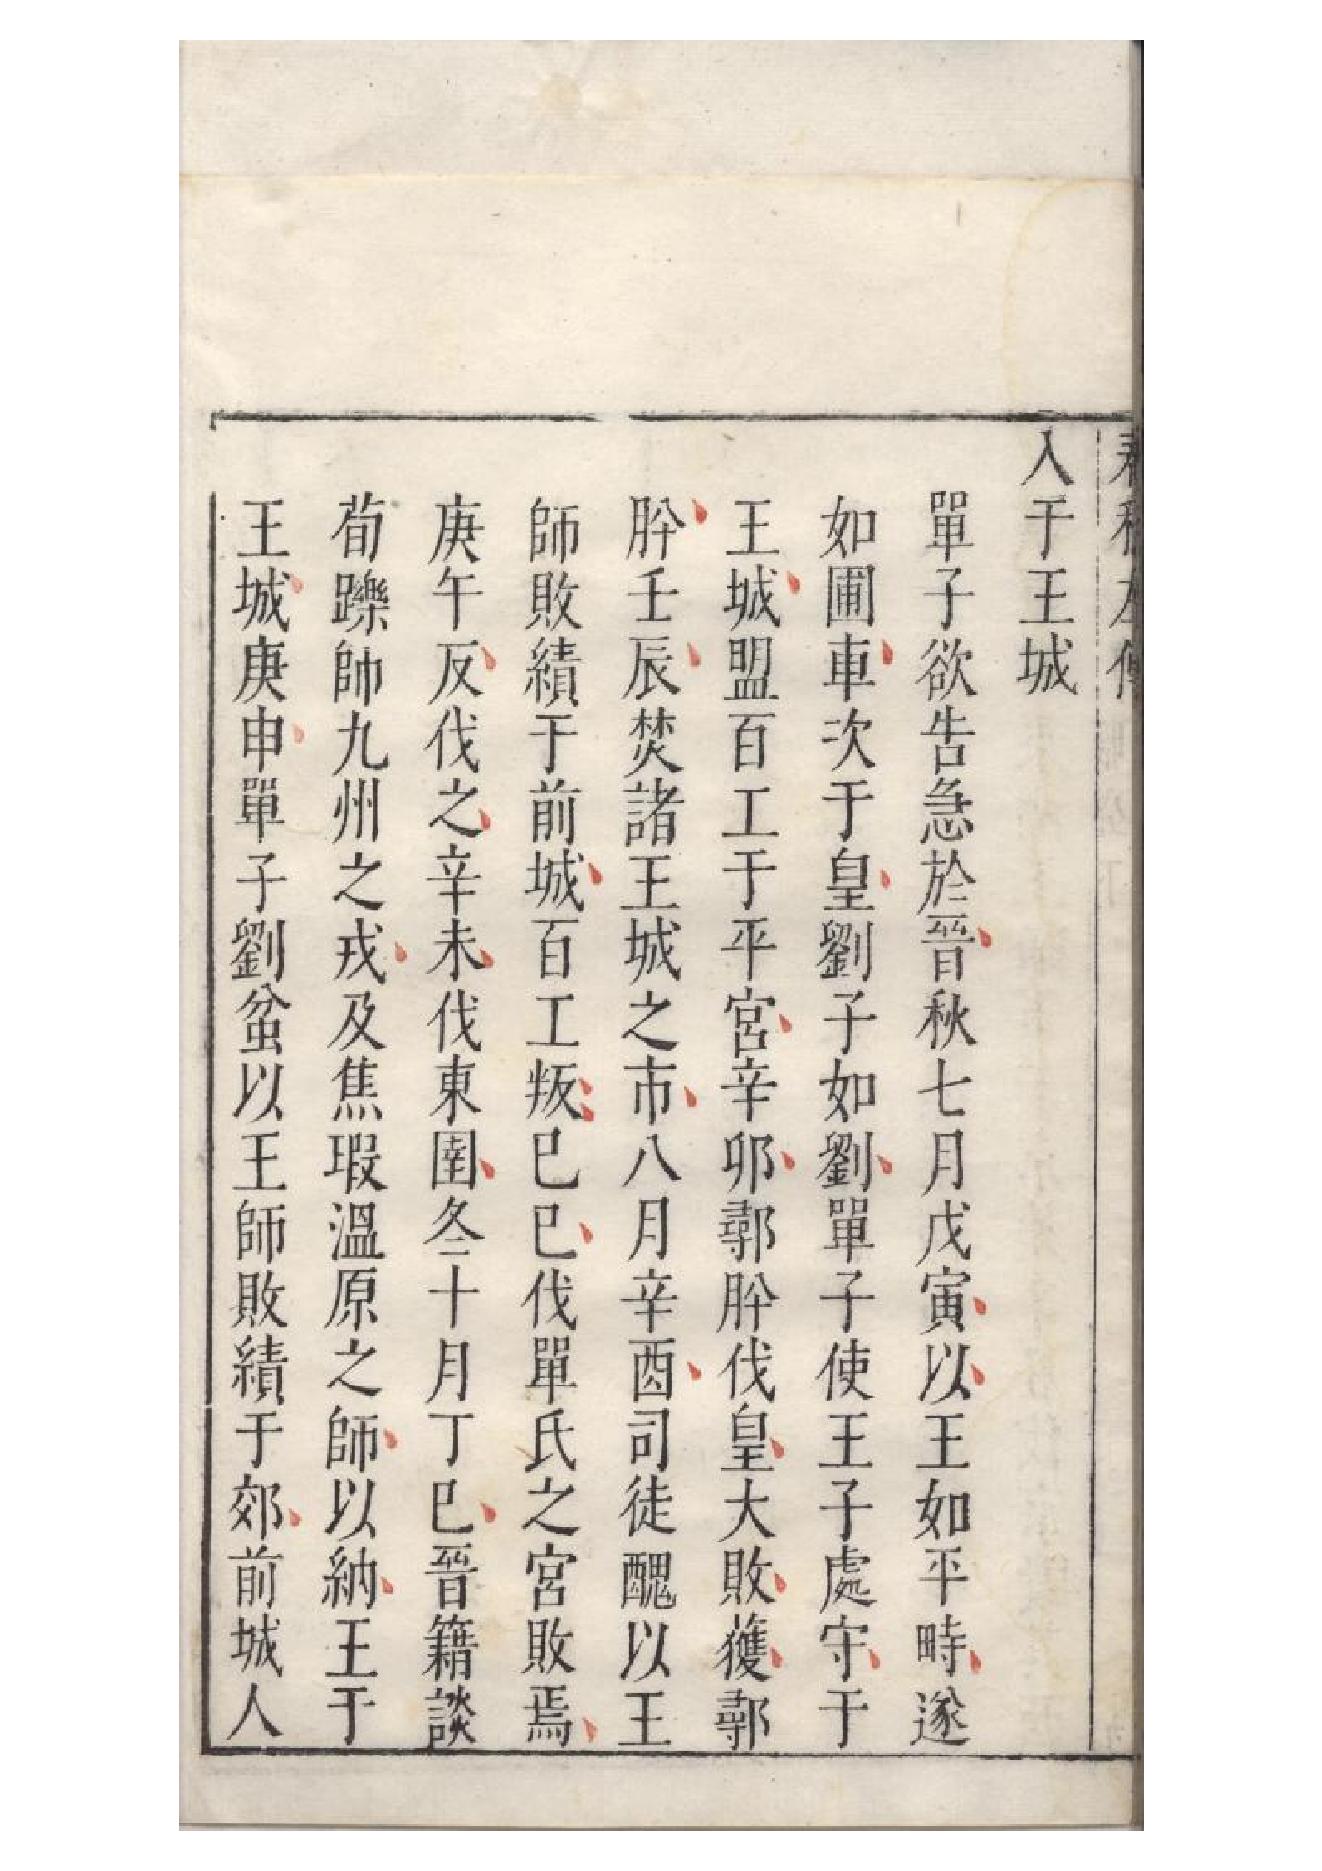 春秋左傳
入于王城
單子欲告急於晉秋七月戊寅以王如平畤遂
如圃車次于皇劉子如劉單子使王子處守于
王城盟百工于平宮辛卯鄩肸伐皇大敗獲鄩
肸壬辰焚諸王城之市八月辛酉司徒醜以王
師敗績于前城百工叛己巳伐單氏之宮敗焉
庚午反伐之辛未伐東圉冬十月丁巳晉籍談
荀躒帥九州之戎及焦瑕溫原之師以納王于
王城庚申單子劉蚠以王師敗績于郊前城人